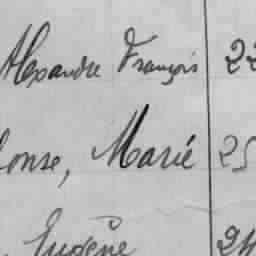 Alexandre François 22
onse, Marié 25
Eugène 24